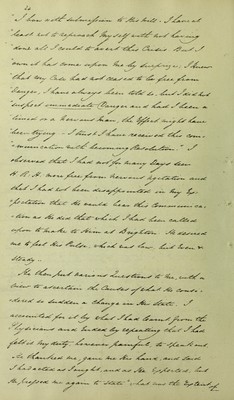 "I bow with submission to His will. I have at
least not to reproach Myself with not having
done all I could to avert this Crisis. But I
own it has come upon me by surprize. I knew
that my Case had not ceased to be free from
Danger, I have always been told so, but I did not
suspect immediate Danger and had I been a
timid or a Nervous Man, the Effect might have
been trying. I trust I have received this com-
munication with becoming Resolution." I
observed that I had not for many days seen
H.R.H. more free from Nervous agitation and
that I had not been disappointed in my Ex-
pectation that He would bear this Communica-
tion as He did that which I had been called
upon to make to Him at Brighton. He desired
me to feel His Pulse, which was low but even &
steady.
He then put various Questions to Me, with a
view to ascertain the Causes of what He consi-
dered so sudden a Change in His State. I
accounted for it by what I had learnt from the
Physicians and ended by repeating that I had
felt it My duty, however painful, to speak out.
He thanked me, gave me His hand, and said
I had acted as I ought, and as He expected, but
He pressed me again to state "what was the Extent of